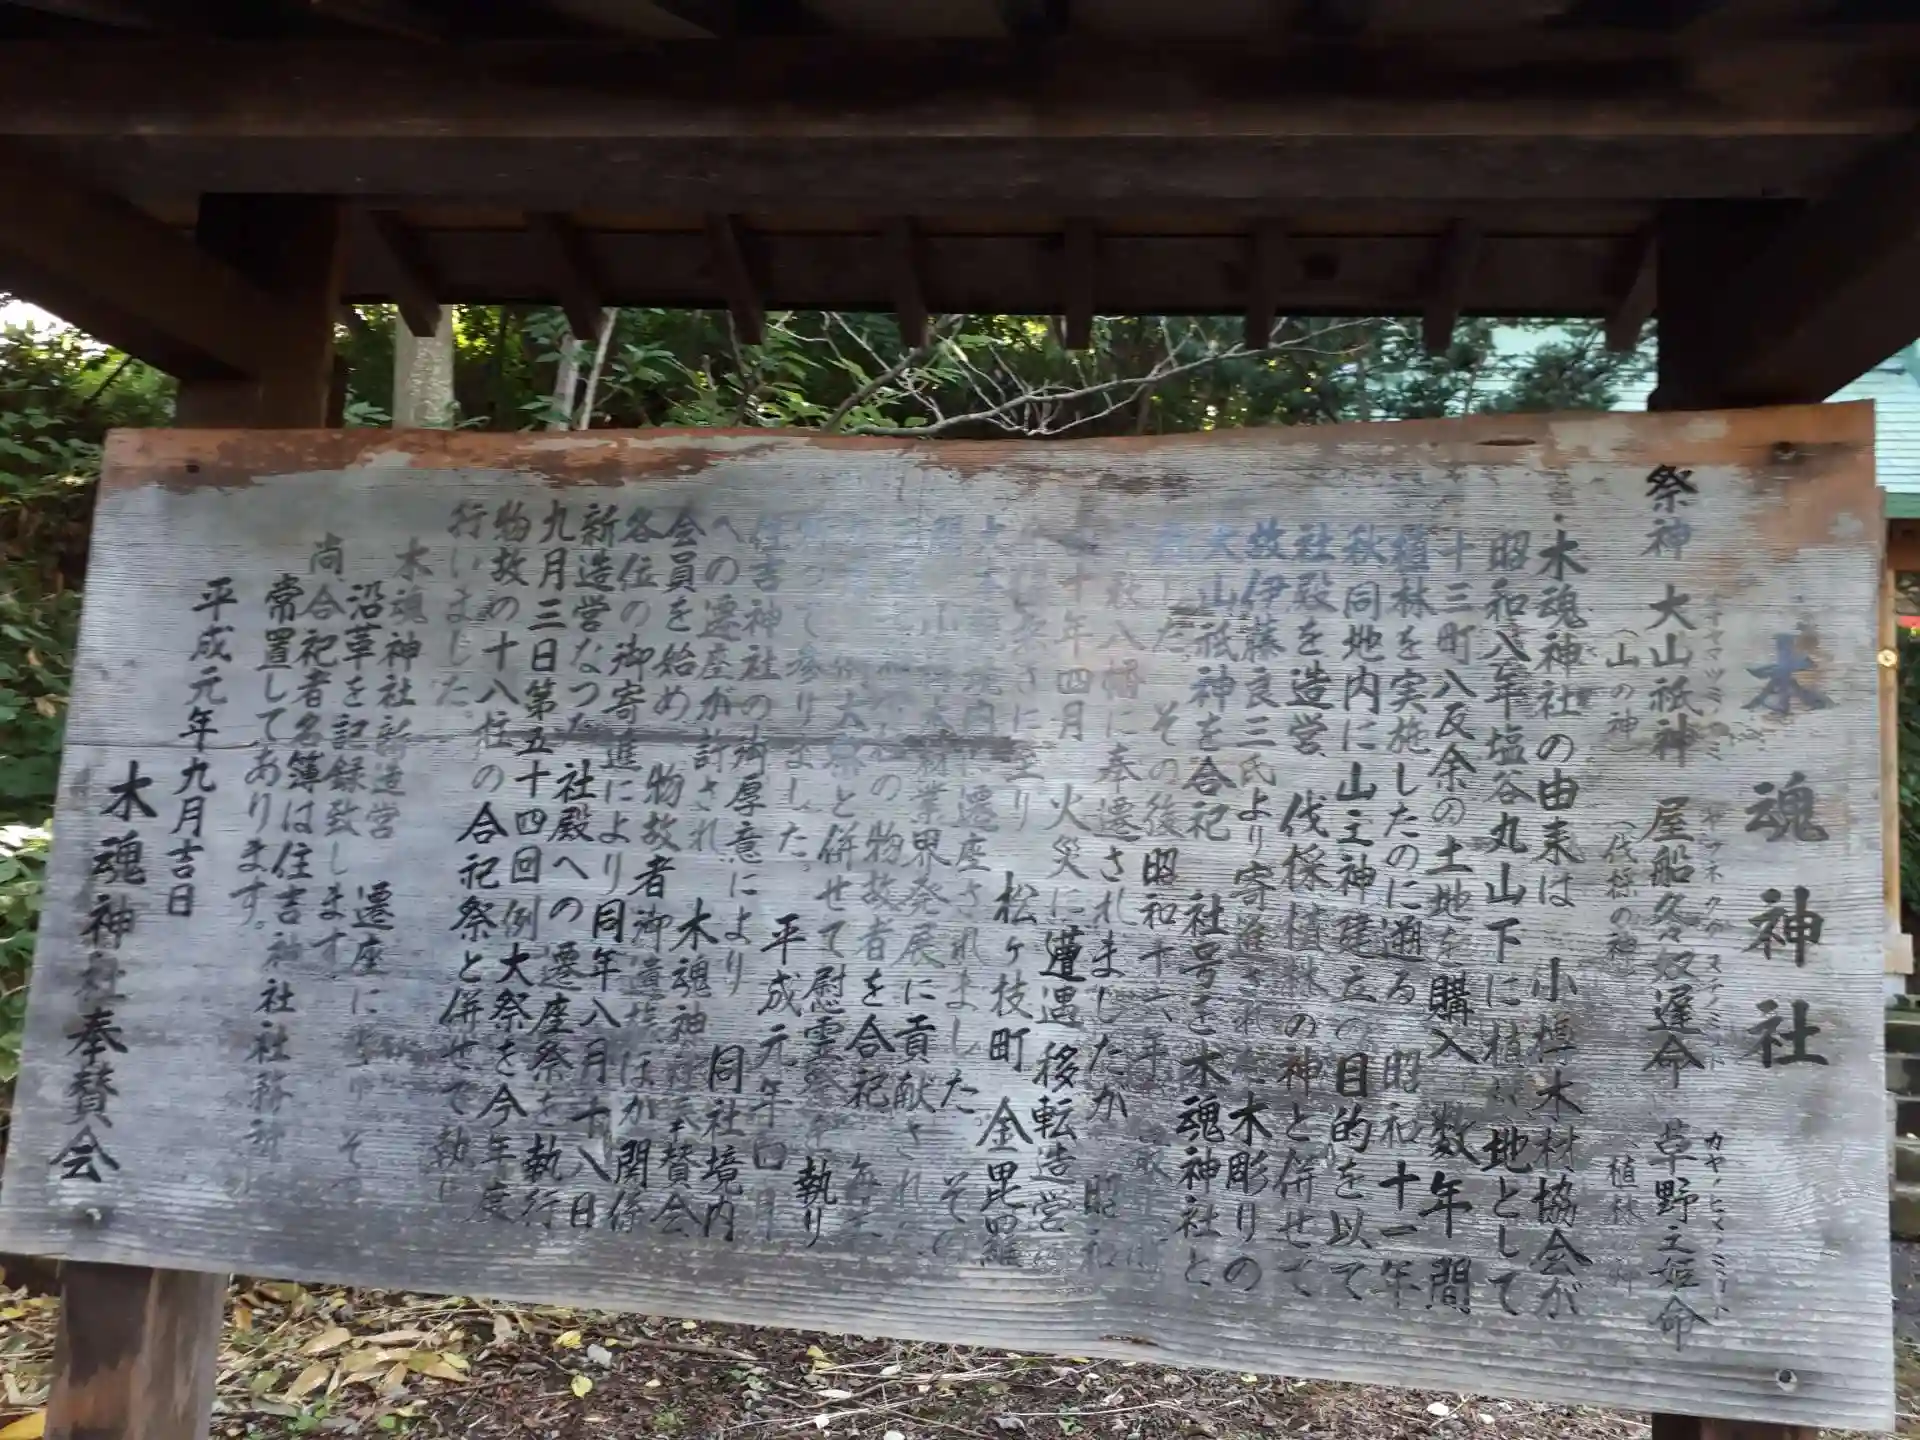 木魂神社
祭神 大山祇神 屋船久々奴遅命 草野之姫命
オオヤマツミノカミ ヤフネククノチノミコト カヤノヒメノミコト
(山の神) (伐採の神) (植林の神)
木魂神社の由来は 小樽木材協会が
昭和八年塩谷丸山下に植林地として
十三町八反余の土地を購入 数年間
植林を実施したのに遡る 昭和十一年
秋同地内に山主神建立の目的を以て
社殿を造営 伐採植林の神と併せて
故伊藤良三氏より寄進された木彫りの
大山祇神を合祀 社号を木魂神社と
した その後 昭和十六年
秋八幡に奉遷されましたが 昭和
十年四月 火災に遭遇 移転造営
さに至り 松ヶ枝町 金毘羅
大本 境内に遷座されました その
小樽木材業界発展に貢献された
の物故者を合祀 毎年
例大祭と併せて慰霊祭を執り
行って参りました。 平成元年四月
住吉神社の御厚意により 同社境内
への遷座が許され 木魂神社奉賛会
会員を始め 物故者御遺族ほか関係
各位の御寄進により同年八月十八日
新造営なった社殿への遷座祭を執行
九月三日第五十四回例大祭を今年度
物故の十八柱の合祀祭と併せて執り
行いました。
木魂神社新造営 遷座に当り その
沿革を記録致します。
尚 合祀者名簿は住吉神社社務所に
常置してあります。
平成元年九月吉日
木魂神社奉賛会